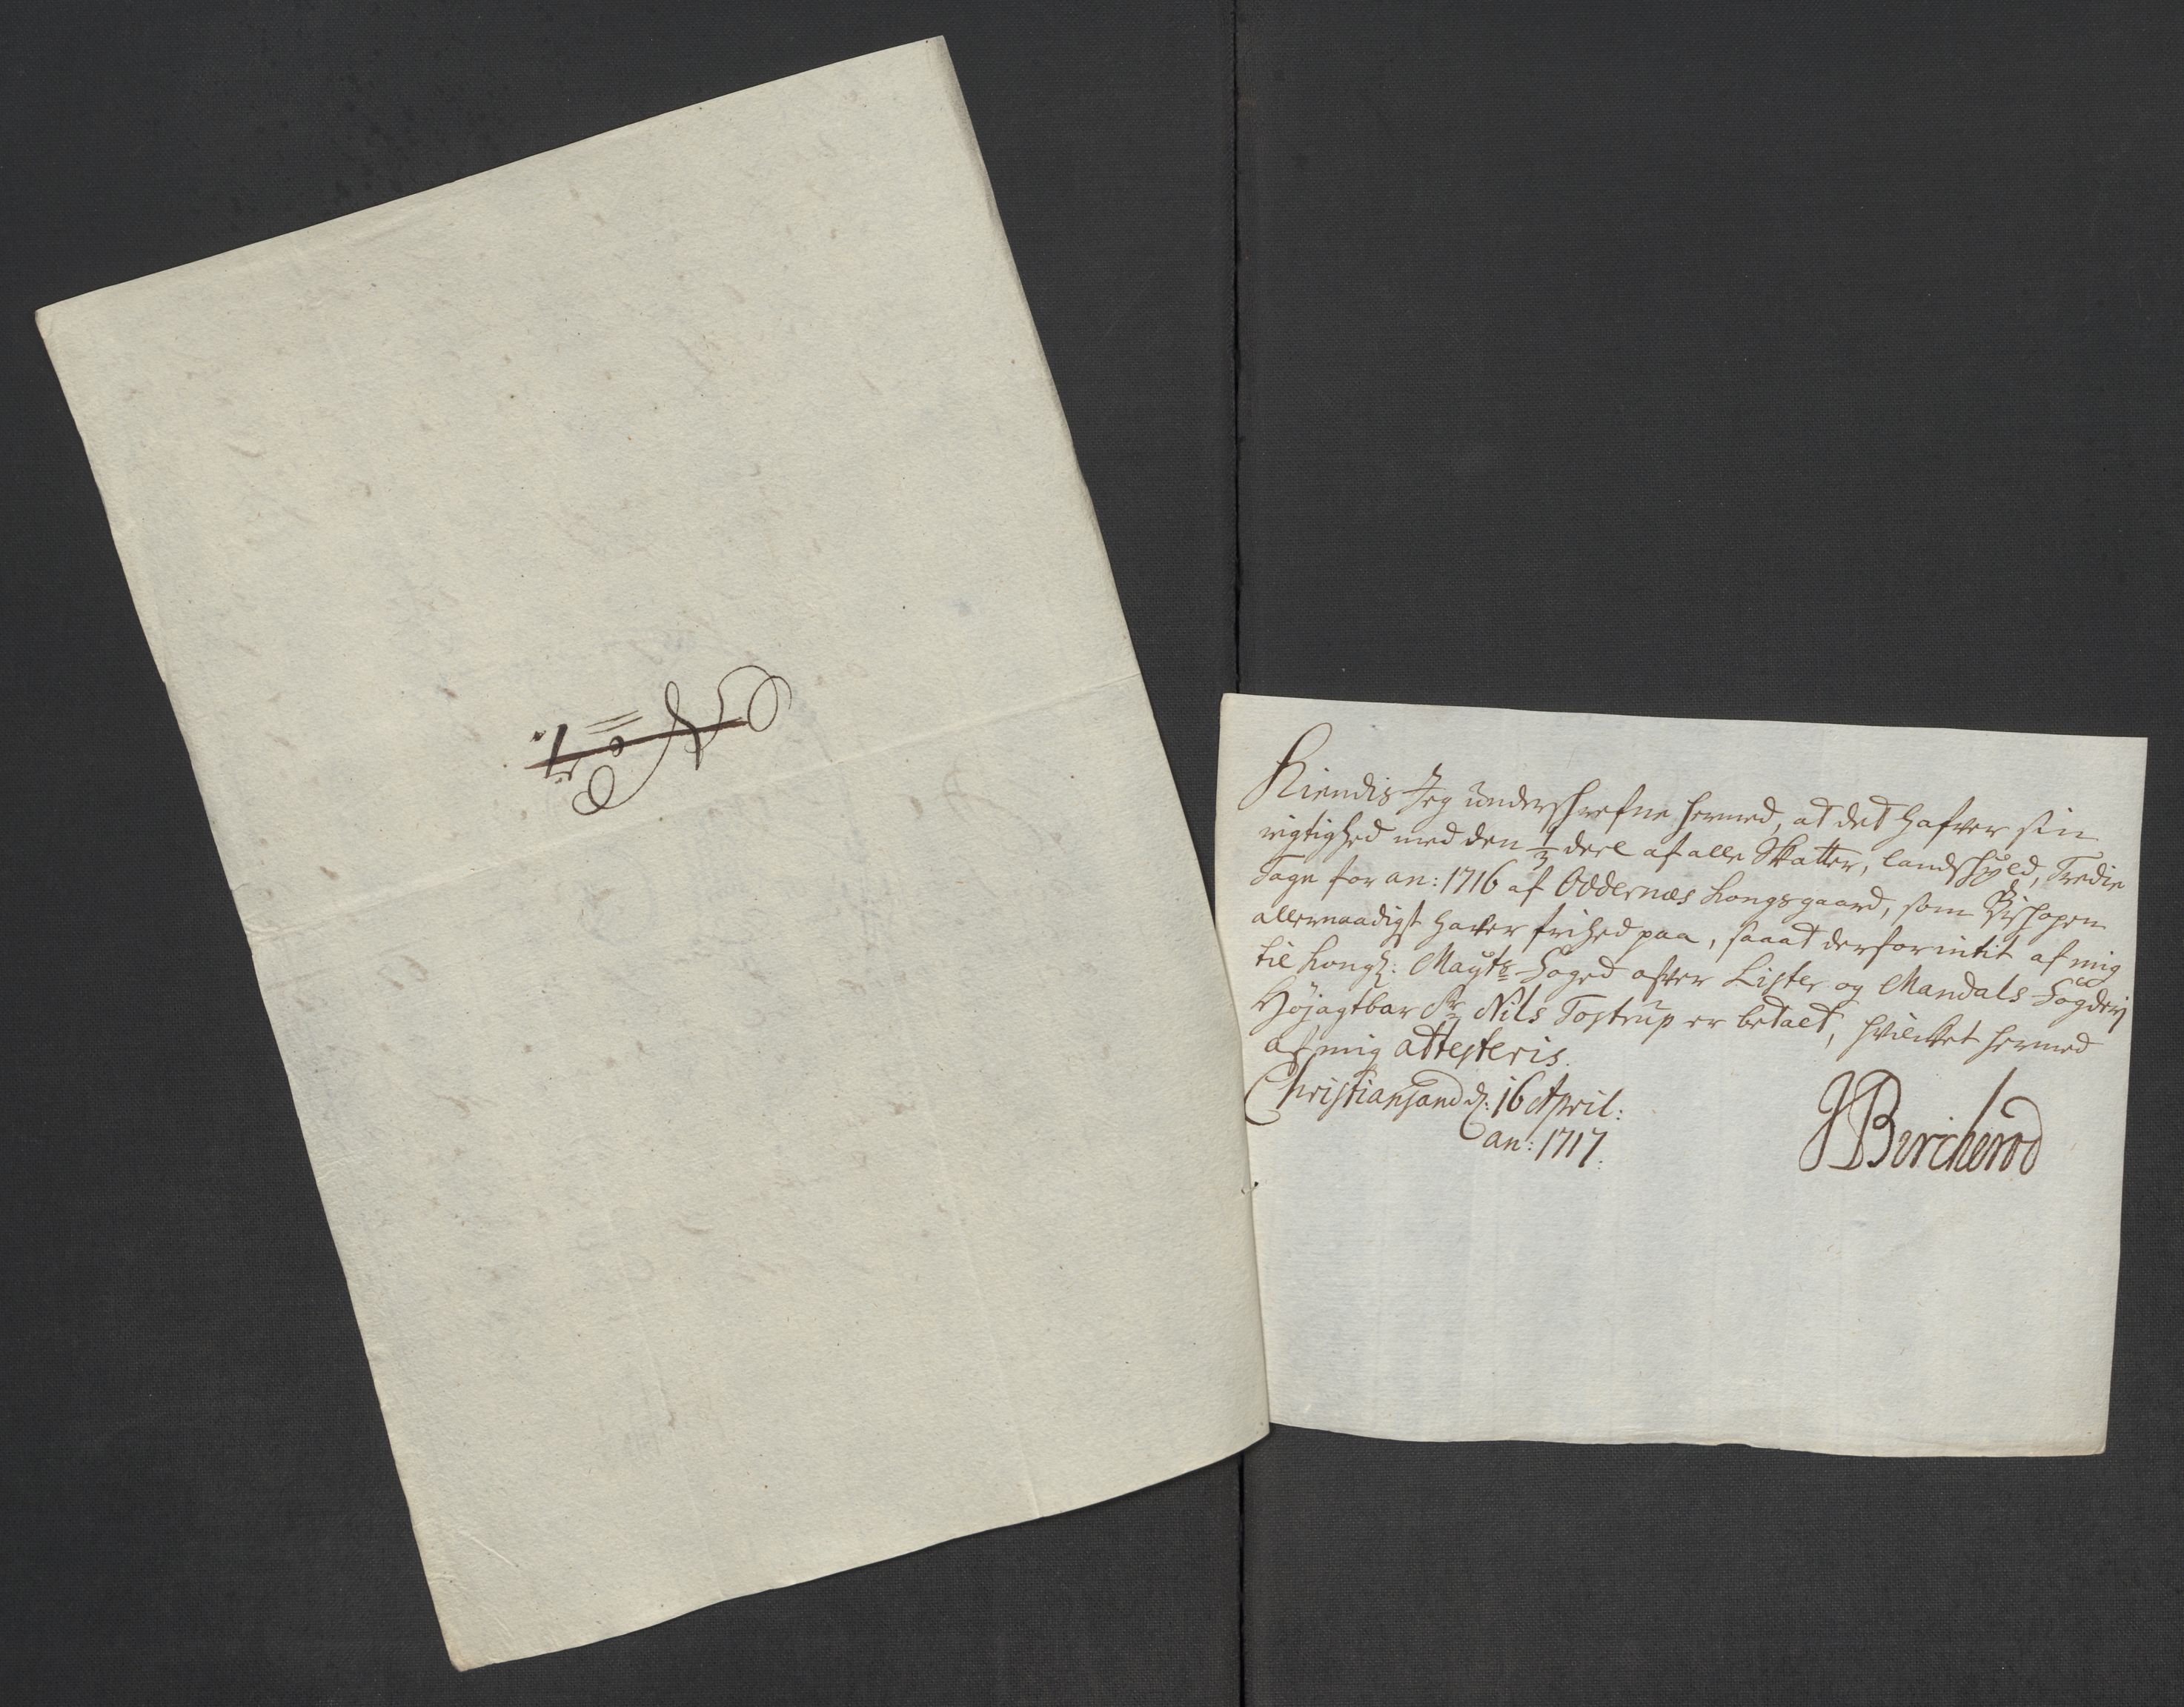 Kiendis Jeg underschrefne hermed, at det hafver sin
rigtighed med den 1/3 deel af alle Skatter, landschyld, Tredie
Tage for an: 1716 af Oddernæs kongsgaard, som Bischopen
allernaadigst haver frihed paa, saaat derfor intet af mig
til kongl: Mayts Foged ofver Lister og Mandals Fogderj
Höjagtbar Sr Nils Tostrup er betalt, hvilcket hermed
af mig attesteris.
Christiansand d: 16 April:
an: 1717.
JBircherod